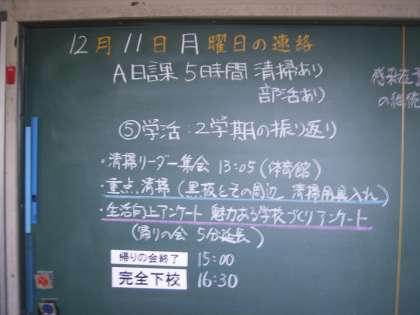 12月11日月曜日の連絡
A日課 5時間 清掃あり
部活あり
⑤学活:2学期の振り返り
・清掃リーダー集会 13:05(体育館)
・重点清掃(黒板とその周辺 清掃用具入れ)
・生活向上アンケート 魅力ある学校づくりアンケート
(帰りの会 5分延長)
帰りの会終了 15:00
完全下校 16:30
感染症予
の継続